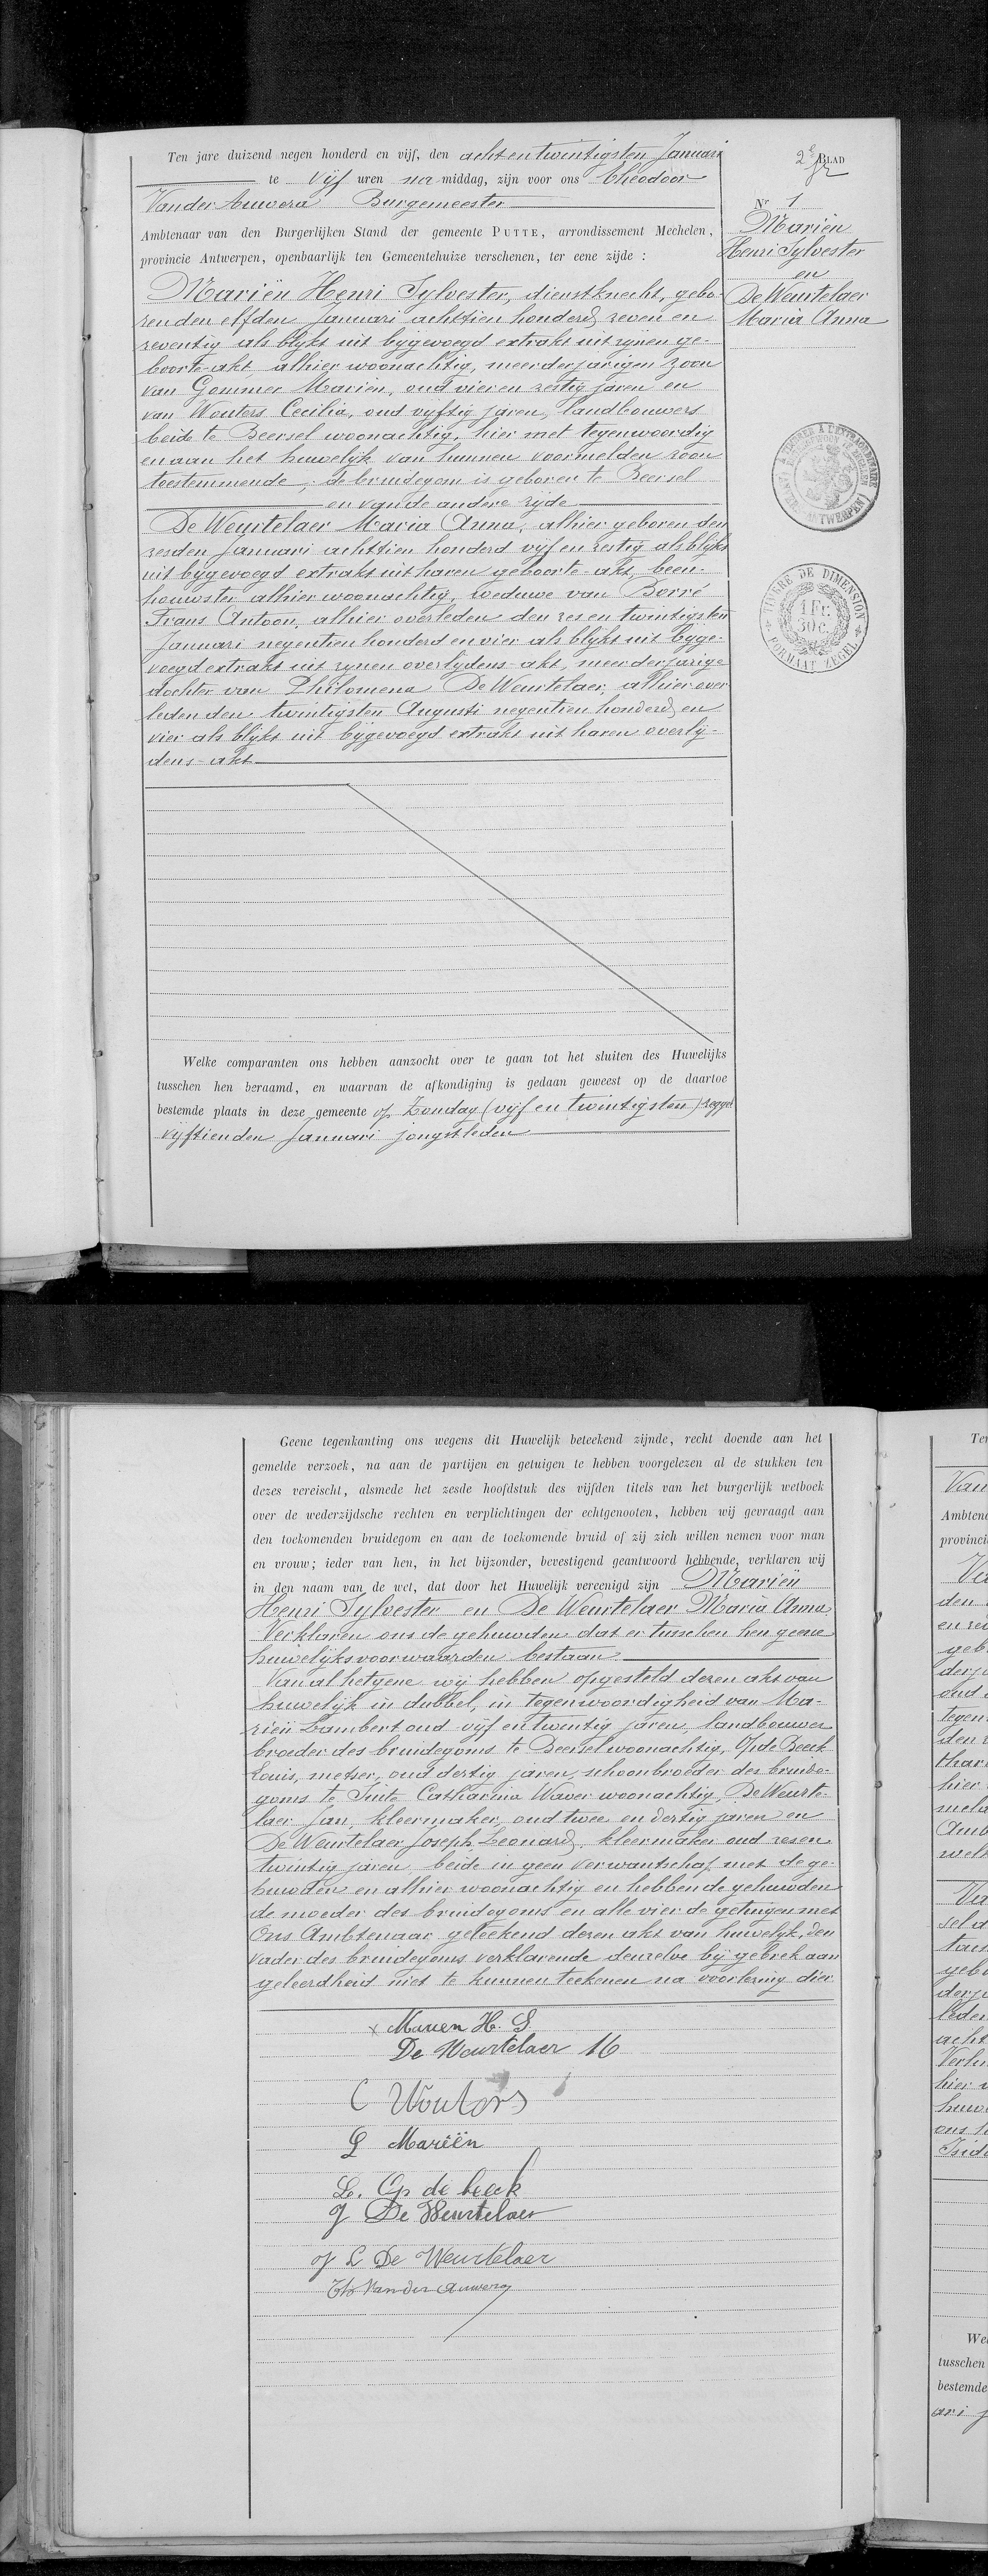 Ten jare duizend negen honderd en vijf, den acht en twintigsten Januari
te vijf uren na middag, zijn voor ons Theodoor
Van der Auwera Burgemeester
Ambtenaar van den Burgerlijken Stand der gemeente PUTTE, arrondissement Mechelen,
provincie Antwerpen, openbaarlijk ten Gemeentehuize verschenen, ter eene zijde :
Mariën Henri Sylvester, dienstknecht, gebo-
ren den elfden Januari achttien honderd zeven en
zeventig als blijkt uit bijgevoegd extrakt uit zijnen ge-
boorte-akt alhier woonachtig, meerderjarigen zoon
van Gommer Mariën, oud vier en zestig jaren en
van Wouters Cecilia, oud vijftig jaren, landbouwers
beide te Beersel woonachtig, hier met tegenwoordig
en aan het huwelijk van hunnen voormelden zoon
toestemmende ; de bruidegom is geboren te Beersel
en van de andere zijde
De Weurtelaer Maria Anna, alhier geboren den
zesden Januari achttien honderd vijf en zestig als blijkt
uit bijgevoegd extrakt uit haren geboorte-akt, been-
houwster alhier woonachtig, weduwe van Borré
Frans Antoon, alhier overleden den zes en twintigsten
Januari negentien honderd en vier als blijkt uit bijge-
voegd extrakt uit zijnen overlijdens-akt, meerderjarige
dochter van Philomena De Weurtelaer, alhier over
leden den twintigsten Augusti negentien honderd en
vier als blijkt uit bijgevoegd extrakt uit haren overlij-
dens-akt
Welke comparanten ons hebben aanzocht over te gaan tot het sluiten des Huwelijks
tusschen hen beraamd, en waarvan de afkondiging is gedaan geweest op de daartoe
bestemde plaats in deze gemeente op Zondag (vijf en twintigsten) zegge
vijftienden Januari jongstleden
2e BLAD
Nr 1
Mariën
Henri Sylvester
en
De Weurtelaer
Maria Anna
TIMBRE DE DIMENSION
1 Fr.
30 c.
FORMAAT ZEGEL
Geene tegenkanting ons wegens dit Huwelijk beteekend zijnde, recht doende aan het
gemelde verzoek, na aan de partijen en getuigen te hebben voorgelezen al de stukken ten
dezes vereischt, alsmede het zesde hoofdstuk des vijfden titels van het burgerlijk wetboek
over de wederzijdsche rechten en verplichtingen der echtgenooten, hebben wij gevraagd aan
den toekomenden bruidegom en aan de toekomende bruid of zij zich willen nemen voor man
en vrouw; ieder van hen, in het bijzonder, bevestigend geantwoord hebbende, verklaren wij
in den naam van de wet, dat door het Huwelijk vereenigd zijn Mariën
Henri Sylvester en De Weurtelaer Maria Anna.
Verklaren ons de gehuwden dat er tusschen hen geene
huwelijksvoorwaarden bestaan.
Van al hetgene wij hebben opgesteld dezen akt van
huwelijk in dubbel, in tegenwoordigheid van Ma-
riën Lambert oud vijf en twintig jaren landbouwer
broeder des bruidegoms te Beersel woonachtig, Op de Beeck
Louis, metser, oud dertig jaren, schoonbroeder des bruide-
goms te Sinte Catharina Waver woonachtig, De Weurte-
laer Jan, kleermaker, oud twee en dertig jaren en
De Weurtelaer Joseph Leonard, kleermaker oud zes en
twintig jaren beide in geen verwantschap met de ge-
huwden en alhier woonachtig en hebben de gehuwden
de moeder des bruidegoms en alle vier de getuigen met
Ons Ambtenaar geteekend dezen akt van huwelijk, den
vader des bruidegoms verklarende denzelve bij gebrek aan
geleerdheid niet te kunnen teekenen na voorlezing dier
x Marien H. S
De Weurtelaer M
C Wouters
L Mariën
L. Op de beeck
J De Weurtelaer
J L De Weurtelaer
Th Van der Auwera
Van
Ambtena
provincie
den
geb
oud
tegen
hier
Amb
Wel
tusschen
bestemde
ari j